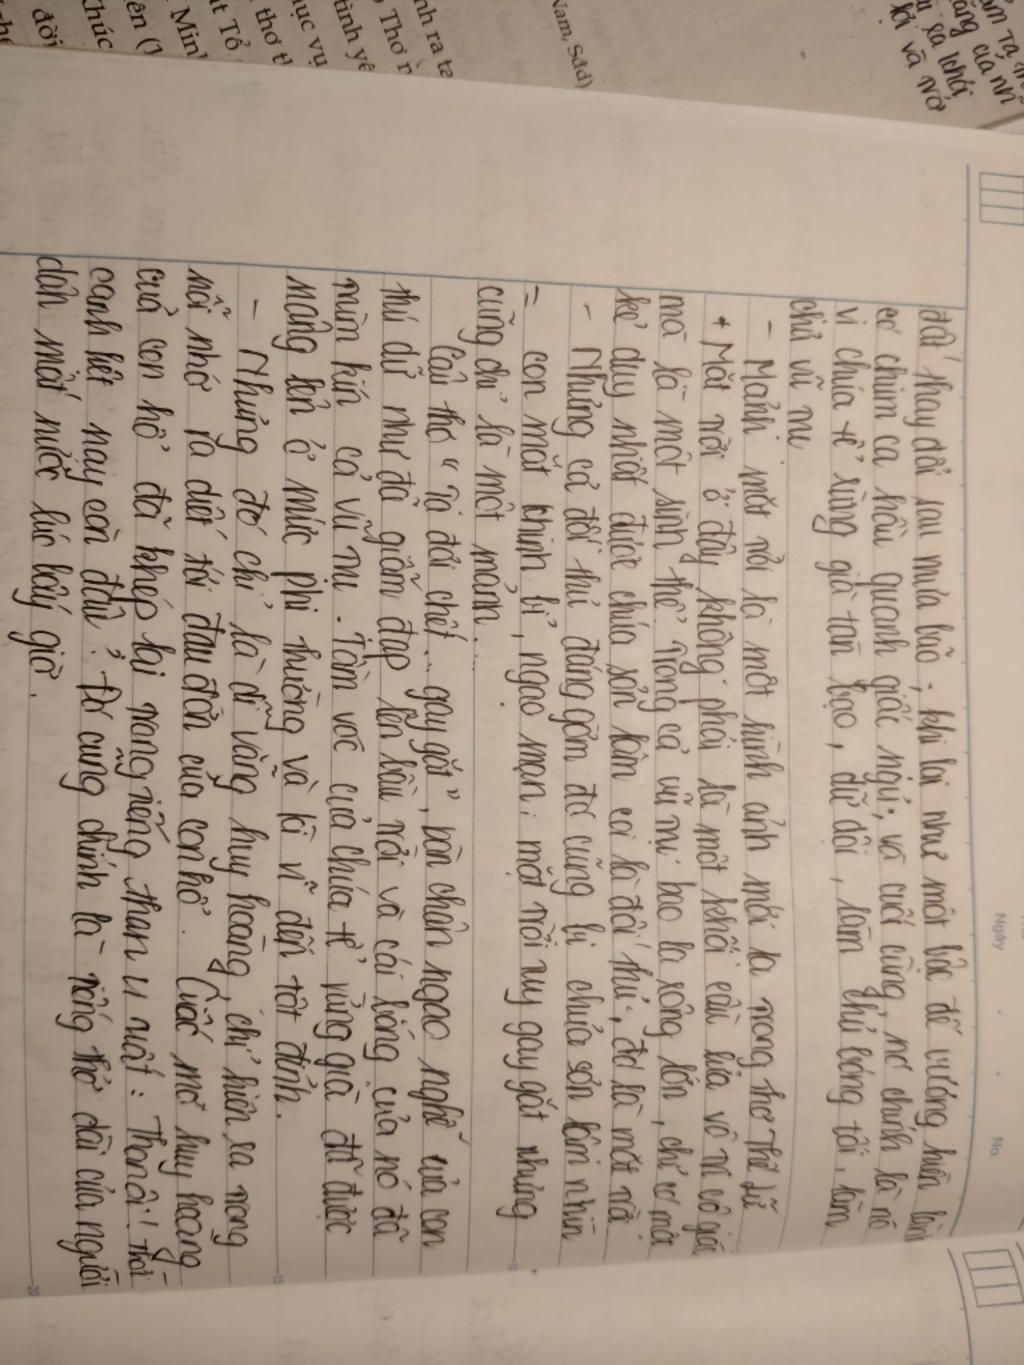 đất thay đổi sau mưa bão; khi lại như một bậc đế vương hiền lành
có chim ca hầu quanh giấc ngủ; và cuối cùng, nó chính là nó
vị chúa tể rừng già tàn bạo, dữ dội, làm chủ bóng tối, làm
chủ vũ trụ
- Mảnh mặt trời là một hình ảnh mới lạ trong thơ Thế Lữ
+ Mặt trời ở đây không phải là một khối cầu lửa vô tri vô giác
mà là một sinh thể. Trong cả vũ trụ bao la rộng lớn, chỉ có một
kẻ duy nhất được chúa sơn lâm coi là đối thủ, đó là mặt trời
- Nhưng cả đối thủ đáng gờm đó cũng bị chúa sơn lâm nhìn
= con mắt khinh bỉ, ngạo mạn: mặt trời tuy gay gắt nhưng
cũng chỉ là một mảnh...
Câu thơ "Ta đợi chết... gay gắt", bàn chân ngạo nghễ của con
thú dữ như đã giẫm đạp lên bầu trời và cái bóng của nó đã
trùm kín cả vũ trụ. Tầm vóc của chúa tể rừng già đã được
nâng lên ở mức phi thường và kì vĩ đến tột đỉnh.
- Nhưng đó chỉ là dĩ vãng huy hoàng, chỉ hiện ra trong
nỗi nhớ da diết tới đau đớn của con hổ. Giấc mơ huy hoàng
của con hổ đã khép lại trong tiếng than u uất: Than ôi! Thời
oanh liệt nay còn đâu? Đó cũng chính là tiếng thở dài của người
dân mất nước lúc bấy giờ.
Ngày
No.
Nam, Sđd)